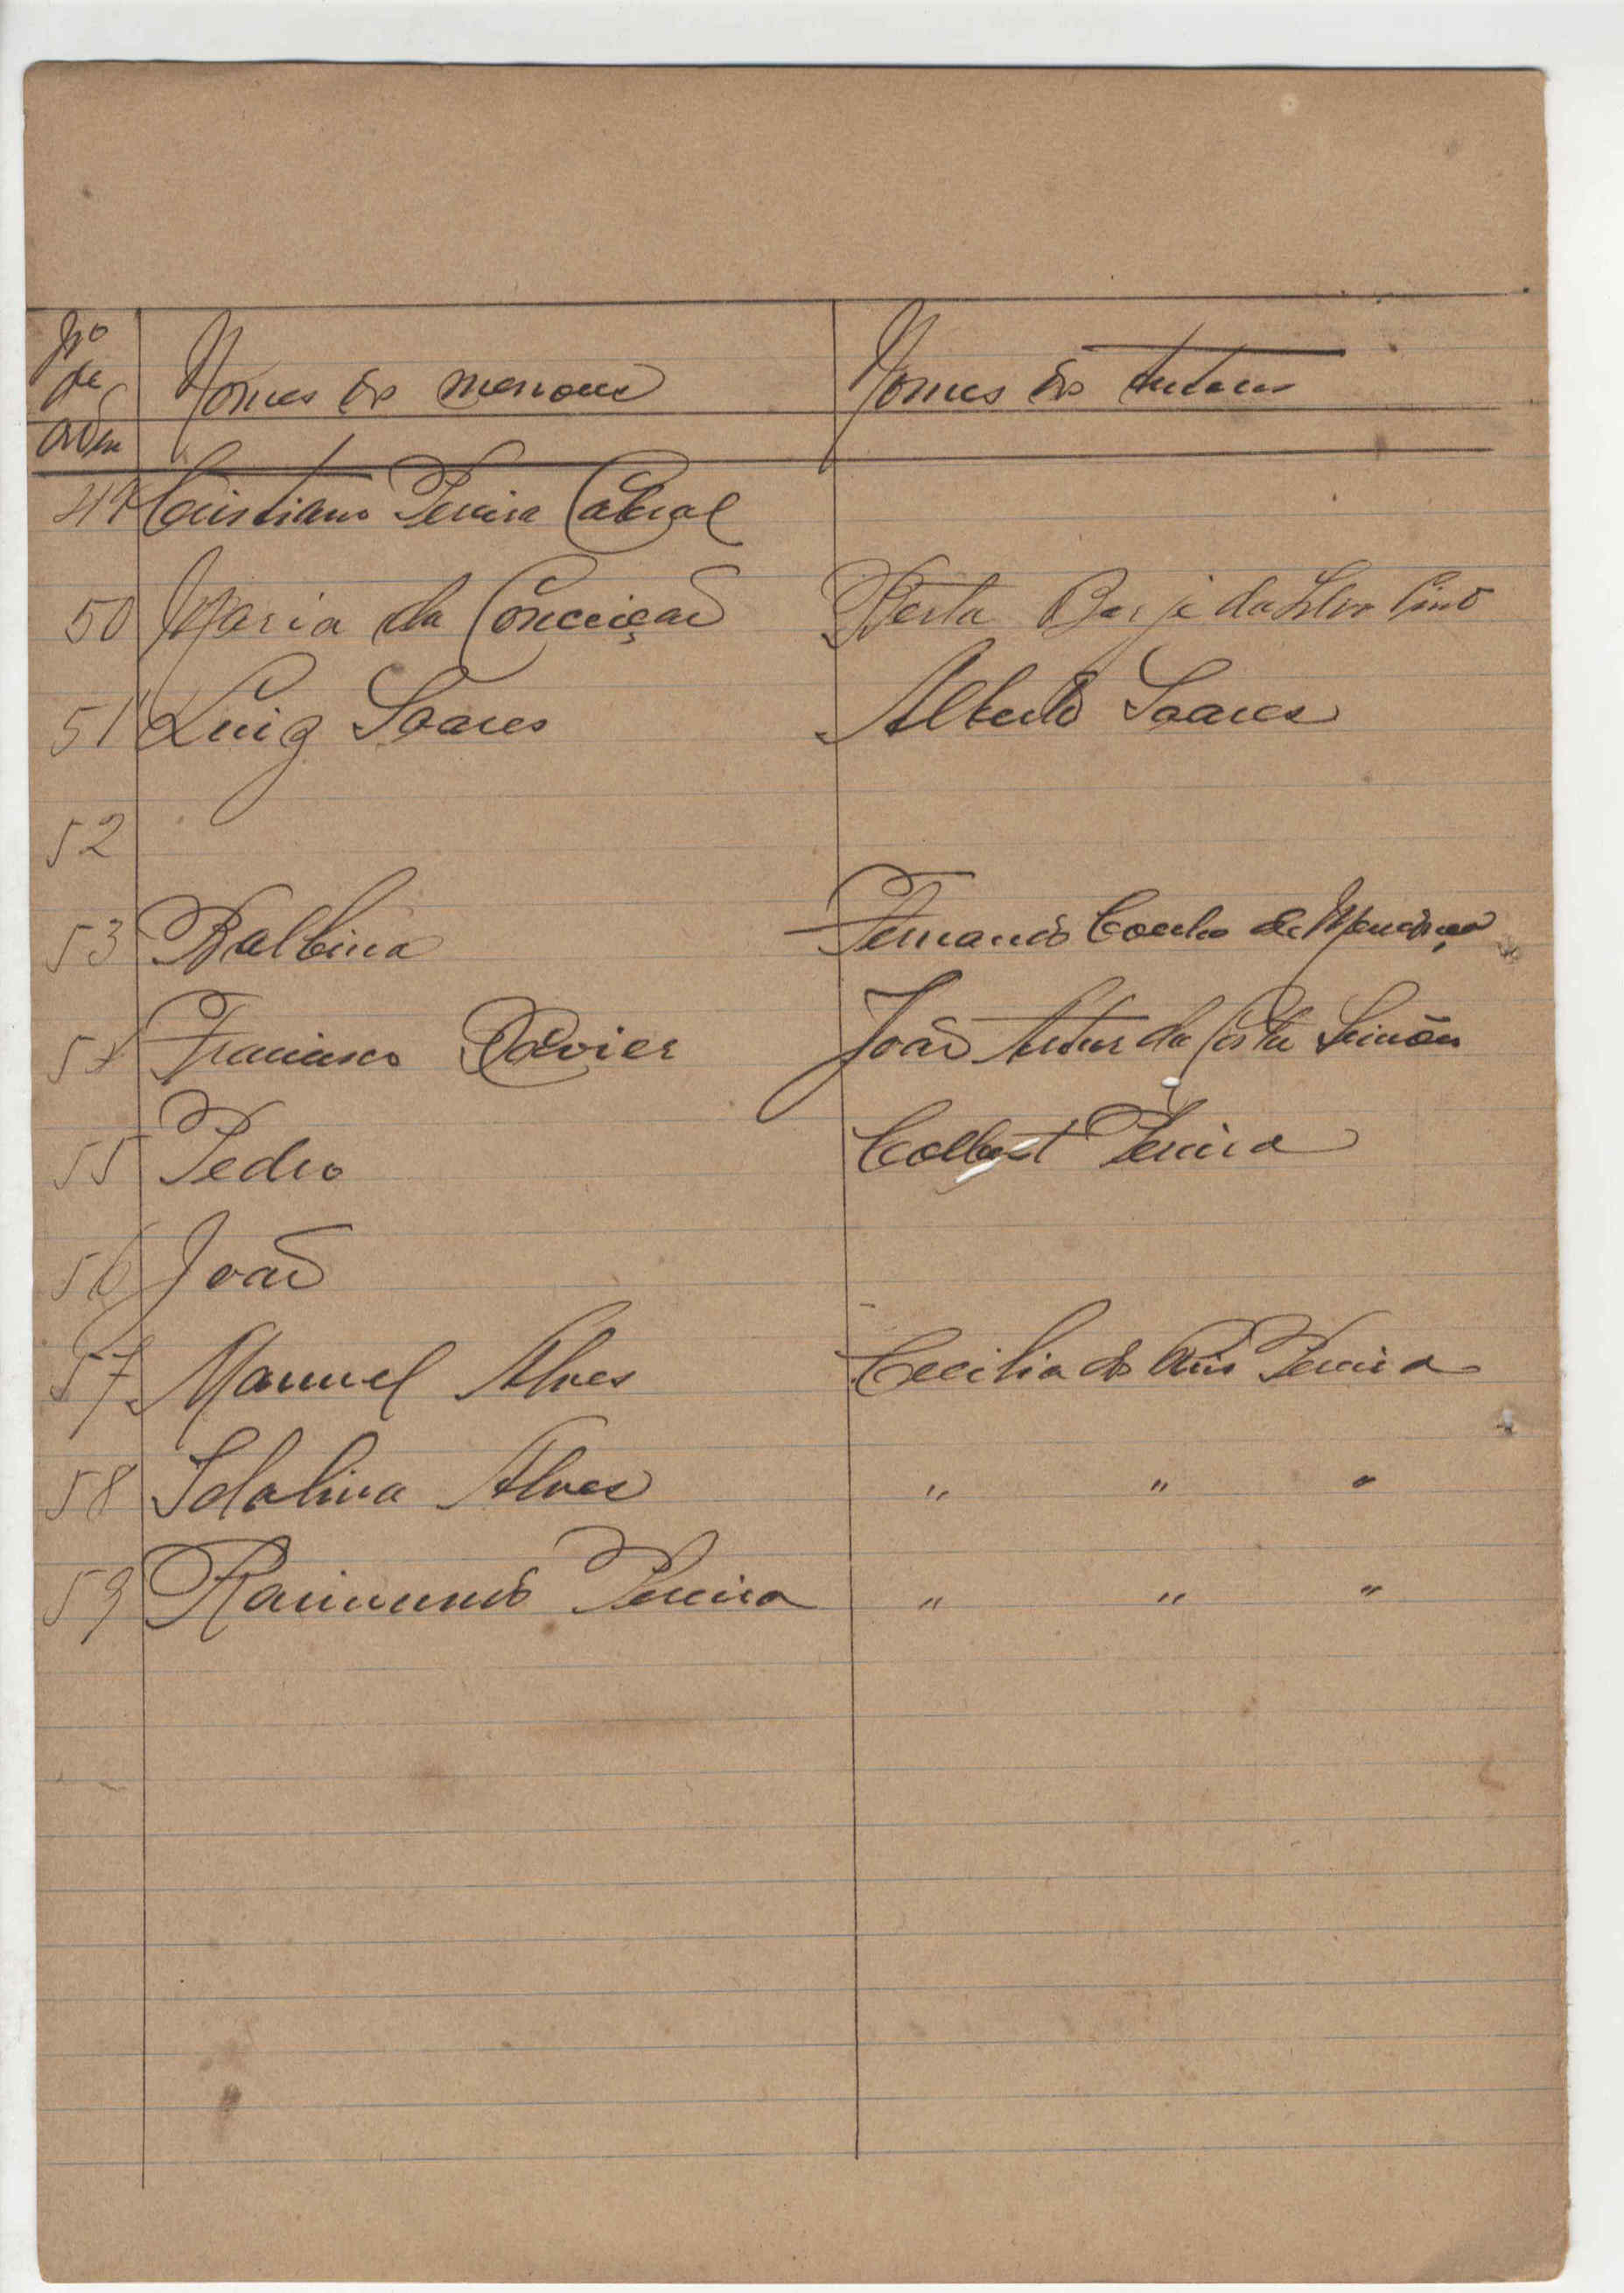 Nº de ordem Nomes dos menores Nomes dos tutores
49 Cristiano Pereira Cabral
50 Maria da Conceição Berta Borja da Silva Pinto
51 Luiz Soares Alberto Soares
52
53 Balbina Fernando Coelho de Mendonça
54 Francisco Xavier João Artur da Costa Simões
55 Pedro Colbert Pereira
56 João
57 Manuel Alves Cecilia dos Pereira
58 Idalina Alves " " "
59 Raimundo Pereira " " "